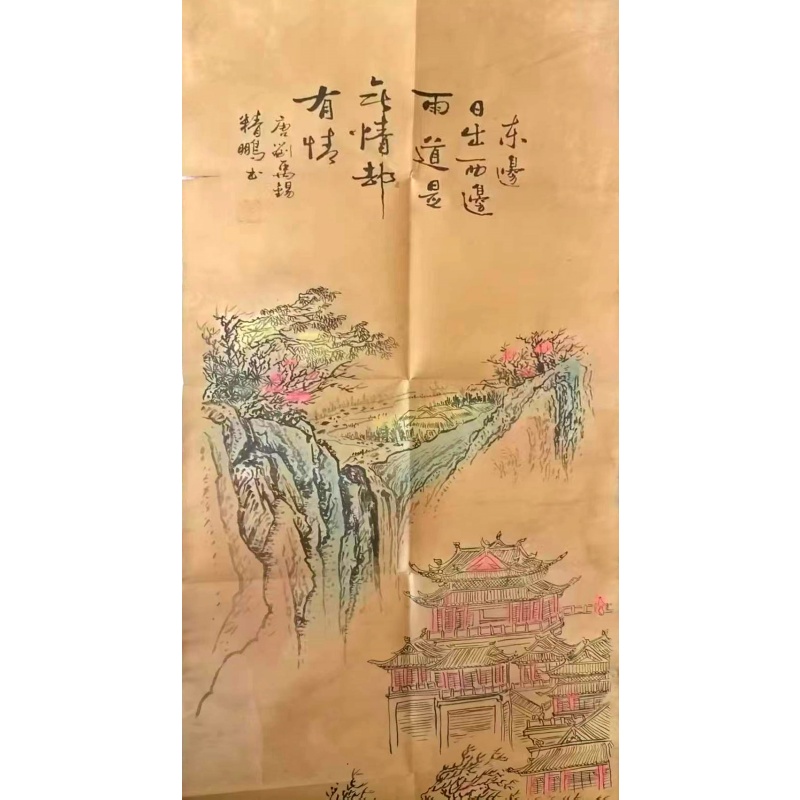 东邊
日出西邊
雨道是
无情却
有情
唐劉禹锡
精鹏书